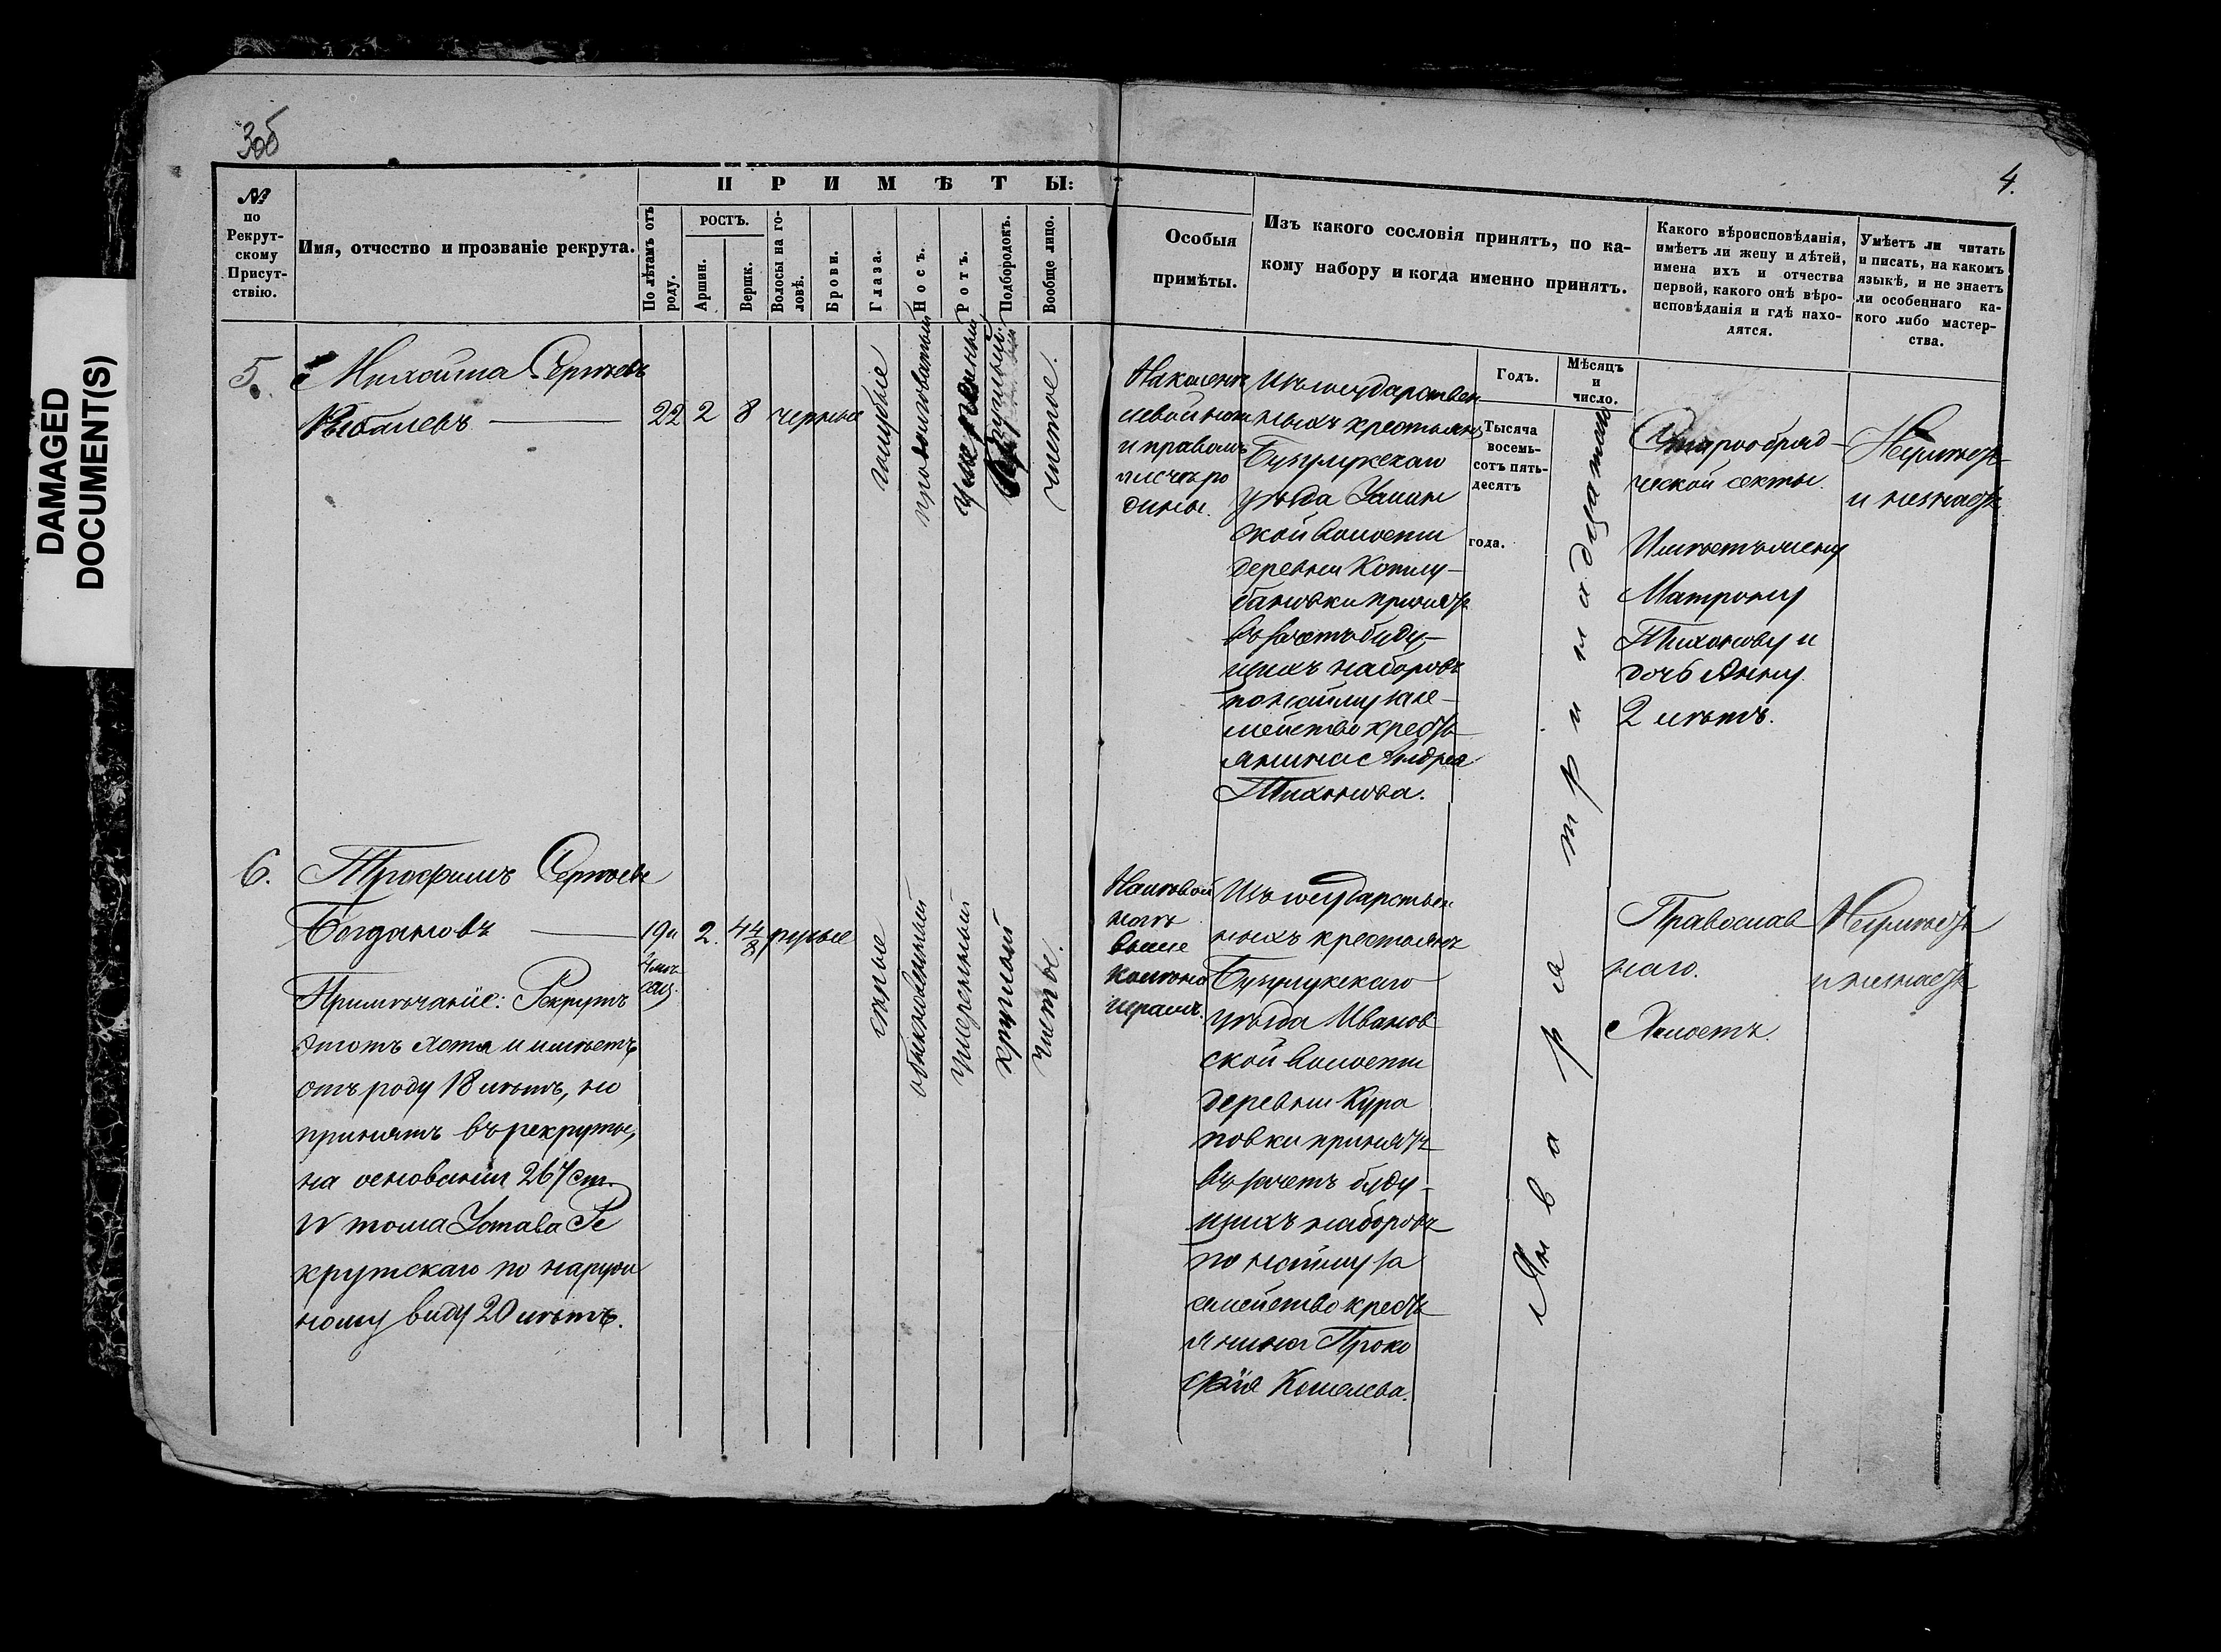 DAMAGED
DOCUMENT(S)
3об
4.
№
по
Рекрут-
скому
Присут-
ствію.
Имя, отчество и прозваніе рекрута.
ПРИМѢТЫ:
По лѣтамъ отъ
роду.
РОСТЪ.
Аршин.
Вершк.
Волосы на го-
ловѣ.
Брови.
Глаза.
Носъ.
Ротъ.
Подбородокъ.
Вообще лицо.
Особыя
примѣты.
Изъ какого сословія принятъ, по ка-
кому набору и когда именно принятъ.
Годъ.
Мѣсяцъ
и
число.
Какого вѣроисповѣданія,
имѣетъ ли жену и дѣтей,
имена ихъ и отчества
первой, какого онѣ вѣро-
исповѣданія и гдѣ нахо-
дятся.
Умѣетъ ли читать
и писать, на какомъ
языкѣ, и не знаетъ
ли особеннаго ка-
кого либо мастер-
ства.
5.
Михайла Сергѣевъ
22
2
8
черные
голубые
продолговатый
умеренный
круглый
чистое.
и правомъ
плечѣ ро
дины.
Изъ государствен
ныхъ крестьянъ
Бузулукскаго
уѣзда
ской волости
деревни
бановки принятъ
въ зачетъ буду-
щихъ наборовъ
по найму за се-
мейство кресть
янина Андрея
Тихонова.
Тысяча
восемь-
сотъ пять-
десятъ
года.
Января тринадцатаго
Старообряд-
ческой секты.
Имѣетъ жену
Матрону
Тихонову и
дочь Анну
2 лѣтъ.
Неумѣетъ
и незнаетъ
6.
Трофимъ Сергѣевъ
Богдановъ
19 и
4 мѣ
сяц.
2.
4 4/8
русые
сѣрые
обыкновенный
умеренный
круглый
чистое.
Примѣчаніе: Рекрутъ
этотъ хотя и имѣетъ
отъ роду 18 лѣтъ, но
принятъ въ рекруты,
на основаніи 267 ст.
IV тома Устава Ре
крутскаго по наруж
ному виду 20 лѣтъ.
На лѣвой
ногѣ
выше
колѣна
шрамъ.
Изъ государствен
ныхъ крестьянъ
Бузулукскаго
уѣзда Иванов
ской волости
деревни Кура
повки принятъ
въ зачетъ буду-
щихъ наборовъ
по найму за
семейство кресть
янина Проко
фія Кошелева.
Православ
наго.
Холостъ.
Неумѣетъ
и незнаетъ